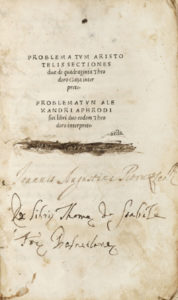 PROBLEMATVM ARISTO
TELIS SECTIONES
duæ de quadraginta Theo
doro Gaza inter
prete.
PROBLEMATVM ALE
XANDRI APHRODI
siei libri duo eodem Theo
doro interprete.
Joannis Augustini
Ex libris Thomæ de